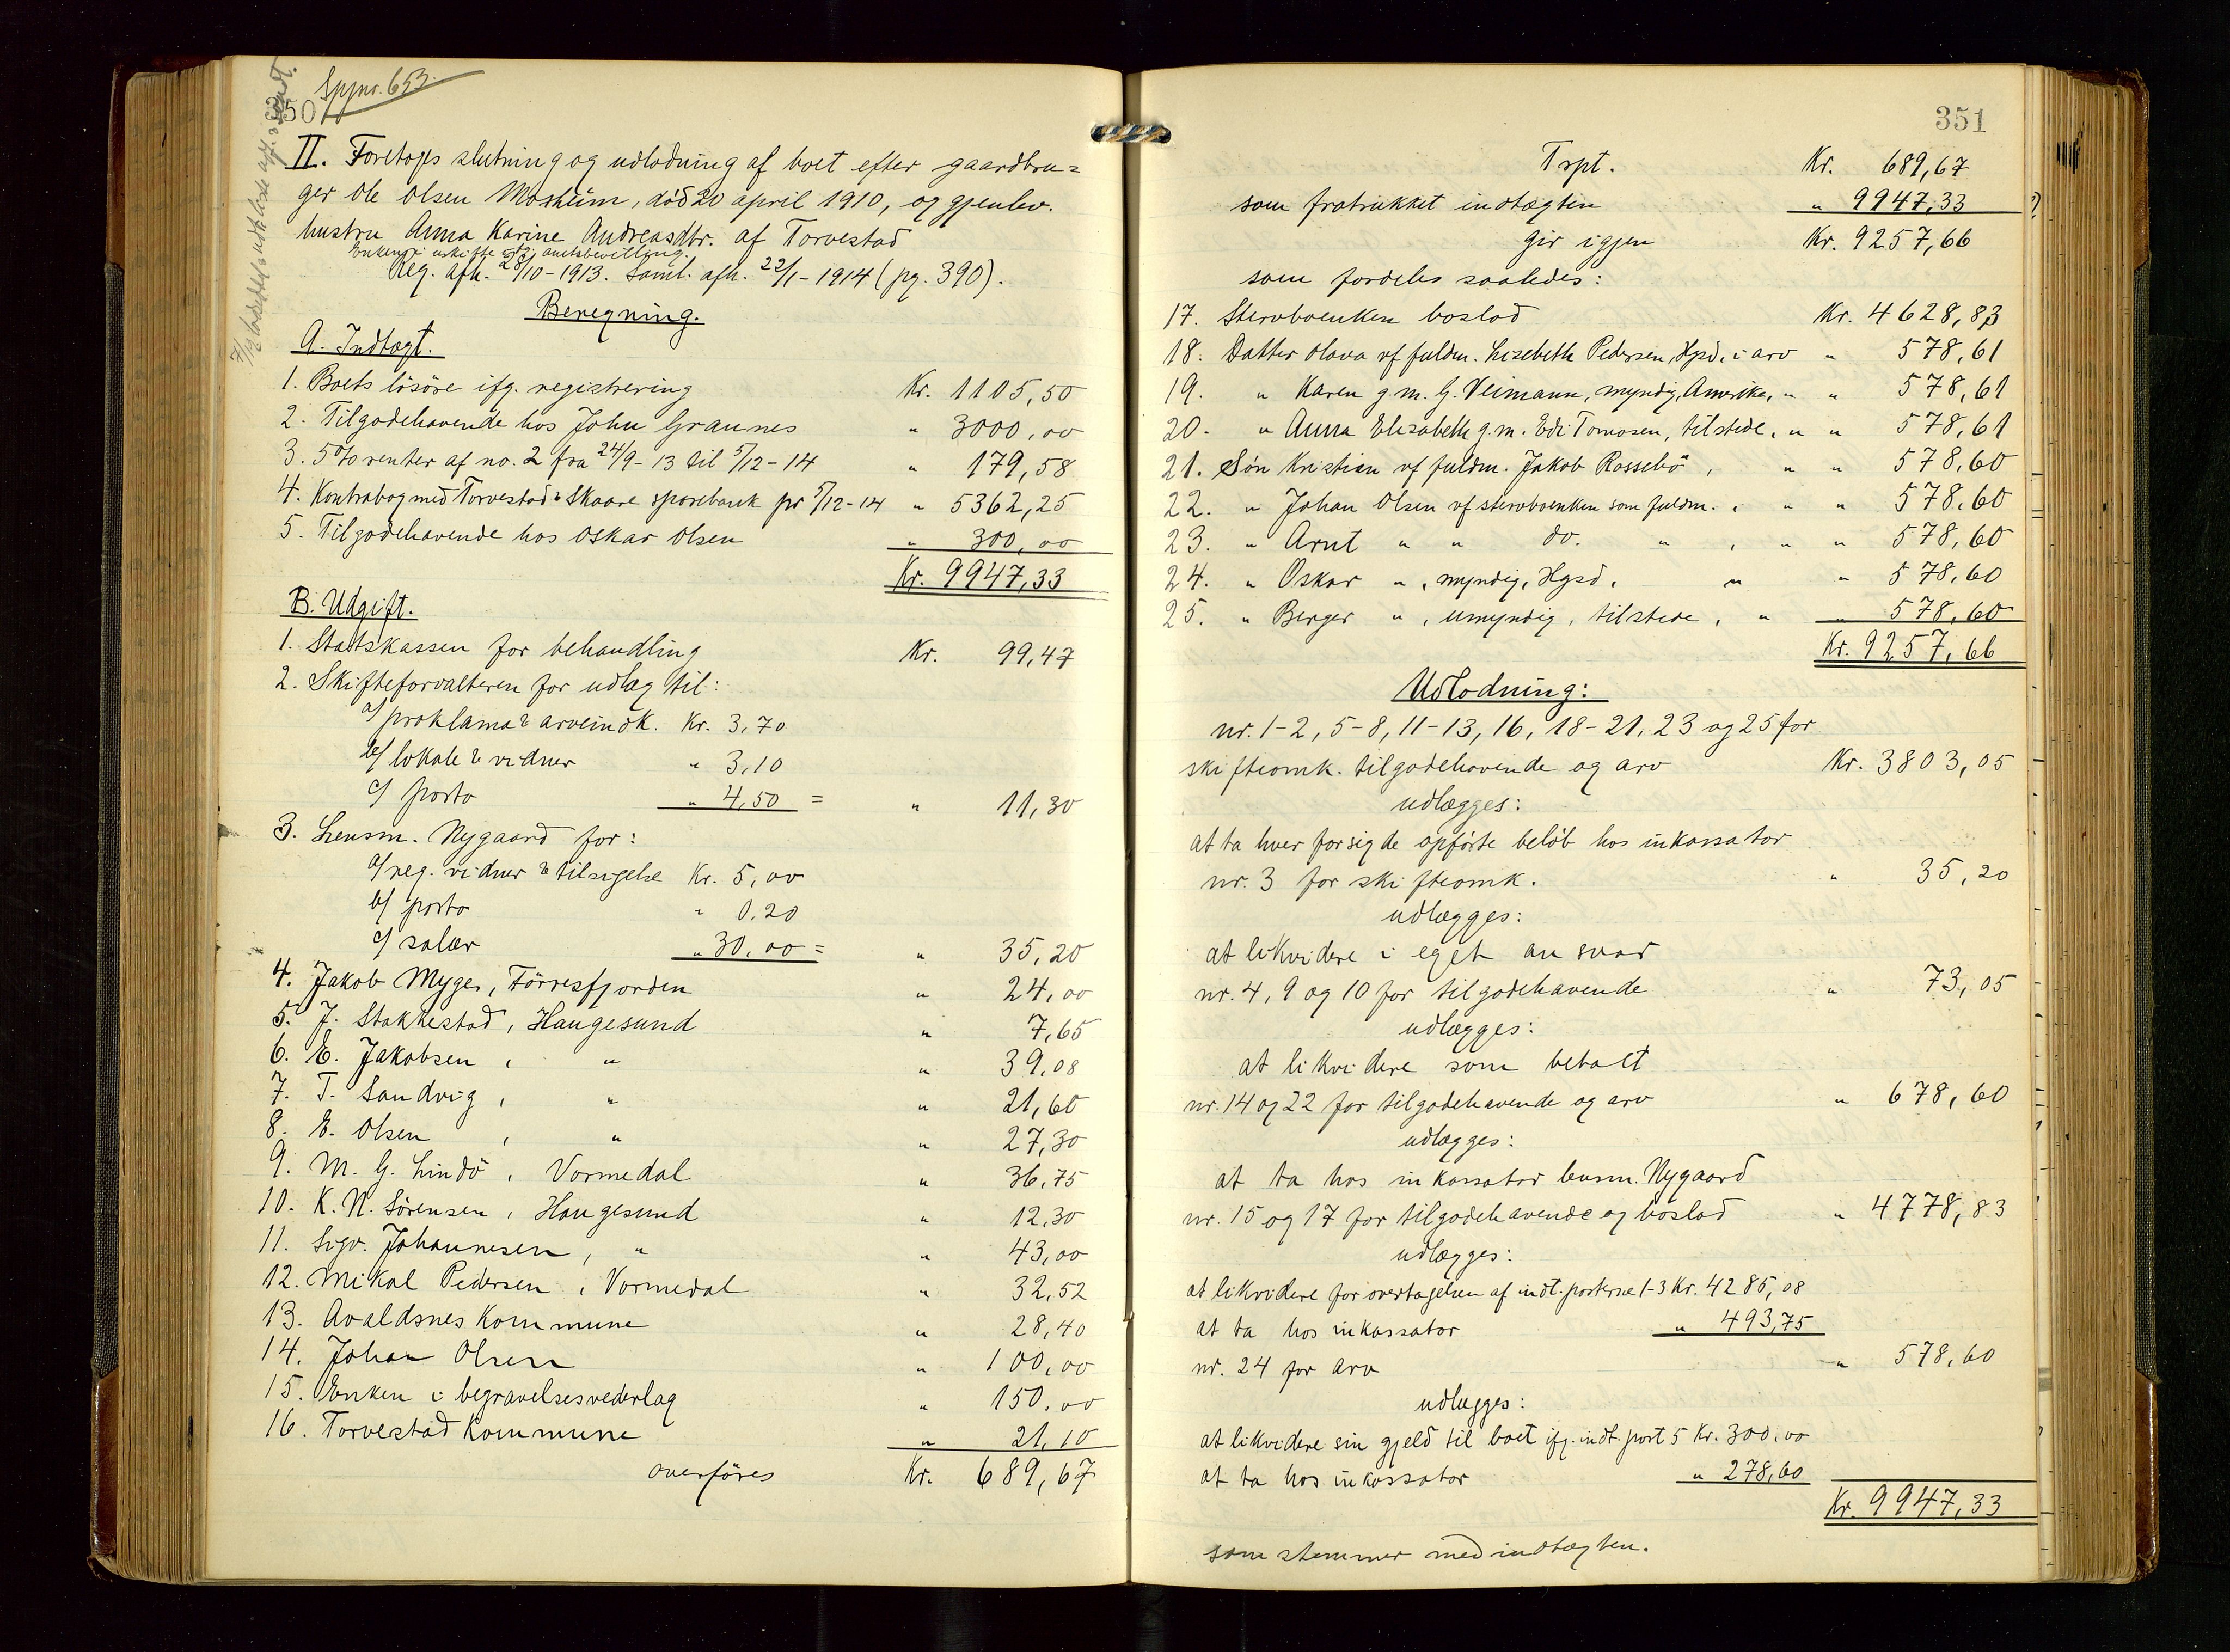 Spjnr. 653.
350
II. Foretoges slutning og udlodning af boet efter gaardbru=
ger Ole Olsen Mosheim, död 20 april 1910, og gjenlev.
hustru Anna Karine Andreasdtr. af Torvestad
Enken i uskifte ifg. amtsbevilling.
Reg. afh. 28/10-1913. Saml. afh. 22/1-1914 (pg. 390).
Beregning.
A. Indtægt.
1. Boets lösöre ifg. registrering Kr. 1105,50
2. Tilgodehavende hos John Grannes " 3000,00
3. 5% renter af no. 2 fra 24/9-13 til 5/12-14 " 179,58
4. Kontrabog med Torvestad & Skaare sparebank pr 5/12-14 " 5362,25
5. Tilgodehavende hos Oskar Olsen " 300,00
Kr. 9947,33
B. Udgift.
1. Statskassen for behandling Kr. 99,47
2. Skifteforvalteren for udlæg til:
a/ proklama & arveindk. Kr. 3,70
b/ lokale & vidner " 3,10
c/ porto " 4,50 = " 11,30
3. Lensm. Nygaard for:
a/ reg. vidner & tilsigelse Kr. 5,00
b/ porto " 0,20
c/ salær " 30,00 = " 35,20
4. Jakob Myge, Förresfjorden " 24,00
5. J. Stakkestad, Haugesund " 7,65
6. E. Jakobsen, " " 39,08
7. T. Sandvig, " " 21,60
8. E. Olsen, " " 27,30
9. M. G. Lindö, Vormedal " 36,75
10. K. N. Sörensen, Haugesund " 12,30
11. Sigv. Johannesen, " " 43,00
12. Mikal Pedersen, Vormedal " 32,52
13. Avaldsnes Kommune " 28,40
14. Johan Olsen " 100,00
15. Enken i begravelsesvederlag " 150,00
16. Torvestad Kommune " 21,10
overföres Kr. 689,67
351
Trpt. Kr. 689,67
som fratrukket indtægten " 9947,33
gir igjen Kr. 9257,66
som fordeles saaledes:
17. Stervboenken boslod Kr. 4628,83
18. Datter Olava vf fuldm. Lisebeth Pedersen, Hgsd. i arv " 578,61
19. " Karen g.m. G. Veimann, myndig, Amerika, " " 578,61
20. " Anna Elisabeth g.m. Edi Tomosen, tilstede, " " 578,61
21. Sön Kristian vf fuldm. Jakob Rossebö, " " 578,60
22. " Johan Olsen vf stervboenken som fuldm., " " 578,60
23. " Arnt " " do. " , " " 578,60
24. " Oskar ", myndig, Hgsd, " " 578,60
25. " Berger ", umyndig, tilstede, " " 578,60
Kr. 9257,66
Udlodning:
nr. 1-2, 5-8, 11-13, 16, 18-21, 23 og 25 for
skifteomk. tilgodehavende og arv Kr. 3803,05
udlægges:
at ta hver for sig de opförte belöb hos inkassator
nr. 3 for skifteomk. " 35,20
udlægges:
at likvidere i eget ansvar
nr. 4, 9 og 10 for tilgodehavende " 73,05
udlægges:
at likvidere som betalt
nr. 14 og 22 for tilgodehavende og arv " 678,60
udlægges:
at ta hos inkassator lensm. Nygaard
nr. 15 og 17 for tilgodehavende og boslod " 4778,83
udlægges:
at likvidere for overtagelsen af indt. posterne 1-3 Kr. 4285,08
at ta hos inkassator " 493,75
nr. 24 for arv " 578,60
udlægges:
at likvidere sin gjeld til boet ifg. indt. post 5 Kr. 300,00
at ta hos inkassator " 278,60
Kr. 9947,33
som stemmer med indtægten.